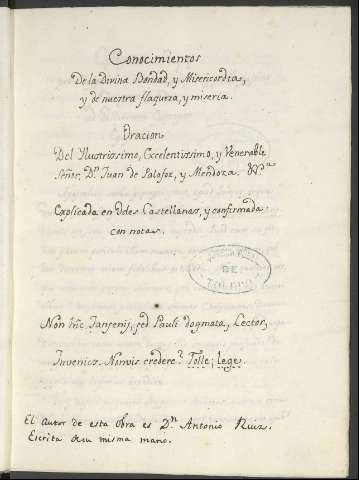 Conocimientos
De la Divina Bondad, y Misericordia,
y de nuestra flaqueza, y miseria.
Oracion
Del Ylustrissimo, Excelentissimo, y Venerable
Señor, Dn. Juan de Palafox, y Mendoza. &ª.
Explicada en Odes Castellanas, y confirmada
con notas.
DE
TOLEDO
Non hîc Jansenij, sed Pauli dogmata, Lector,
Invenies. Nonvis credere? Tolle, lege.
El Autor de esta Obra es Dn. Antonio Ruiz.
Escrita de su misma mano.